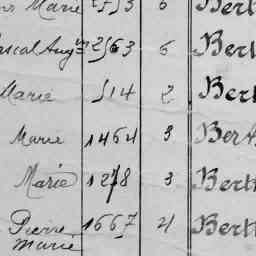 Marie 2553 6 Bert
Pascal Augin 2563 6 Bert
Marie 514 2 Bert
Marie 1464 3 Bert
Marie 1278 3 Bert
Pierre 1667 4 Bert
Marie